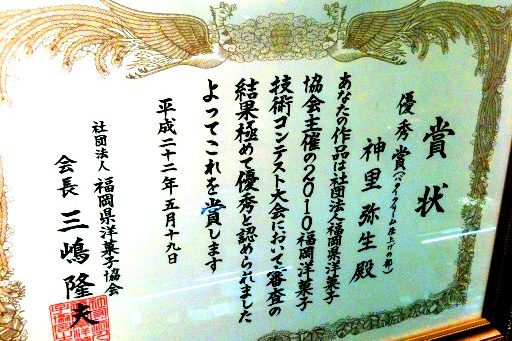 賞状
優秀賞(バタークリーム仕上げの部)
神里 弥生 殿
あなたの作品は社団法人福岡県洋菓子
協会主催の2010福岡洋菓子
技術コンテスト大会において審査の
結果極めて優秀と認められました
よってこれを賞します
平成二十二年五月十九日
社団法人 福岡県洋菓子協会
会長 三嶋 隆夫